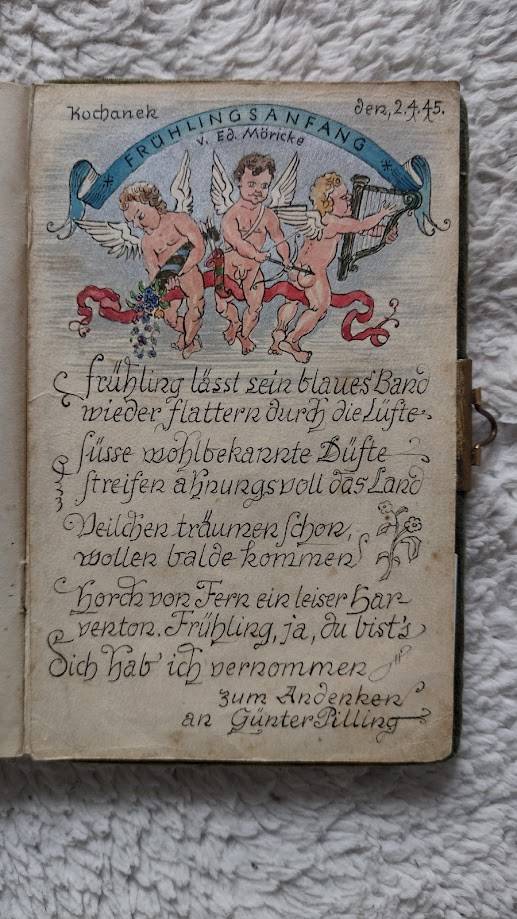 Kochanek den, 2.4.45.
* FRÜHLINGSANFANG *
v. Ed. Möricke
Frühling lässt sein blaues Band
wieder flattern durch die Lüfte
süsse wohlbekannte Düfte
streifen ahnungsvoll das Land
Veilchen träumen schon,
wollen balde kommen
horch von Fern ein leiser Har-
venton. Frühling, ja, du bist's
Dich hab' ich vernommen
zum Andenken
an Günter Pilling